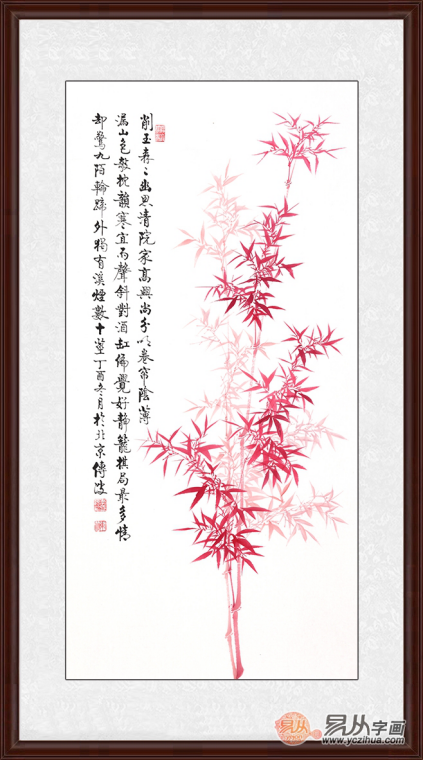 削玉森〻幽思清院家高興尚分明卷帘陰薄
漏山色敧枕韻寒宜雨聲斜對酒缸偏覺好靜籠棋局最多情
却驚九陌輪蹄外獨有溪煙數十莖丁酉冬月於北京傅波
易从字画
www.yczihua.com